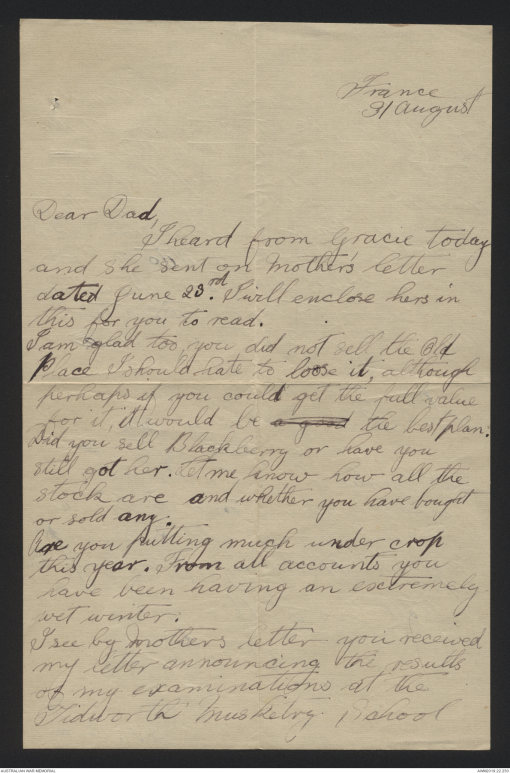 France
31 August
Dear Dad,
I heard from Gracie today
and she sent on Mother's letter
dated June 23rd. I will enclose hers in
this for you to read.
I am glad too, you did not sell the Old
Place I should hate to loose it, although
perhaps if you could get the full value
for it, it would be a good the best plan.
Did you sell Blackberry or have you
still got her. Let me know how all the
stock are and whether you have bought
or sold any.
Are you putting much under crop
this year. From all accounts you
have been having an extremely
wet winter.
I see by Mothers letter you received
my letter announcing the results
of my examinations at the
Tidworth Musketry School
AUSTRALIAN WAR MEMORIAL